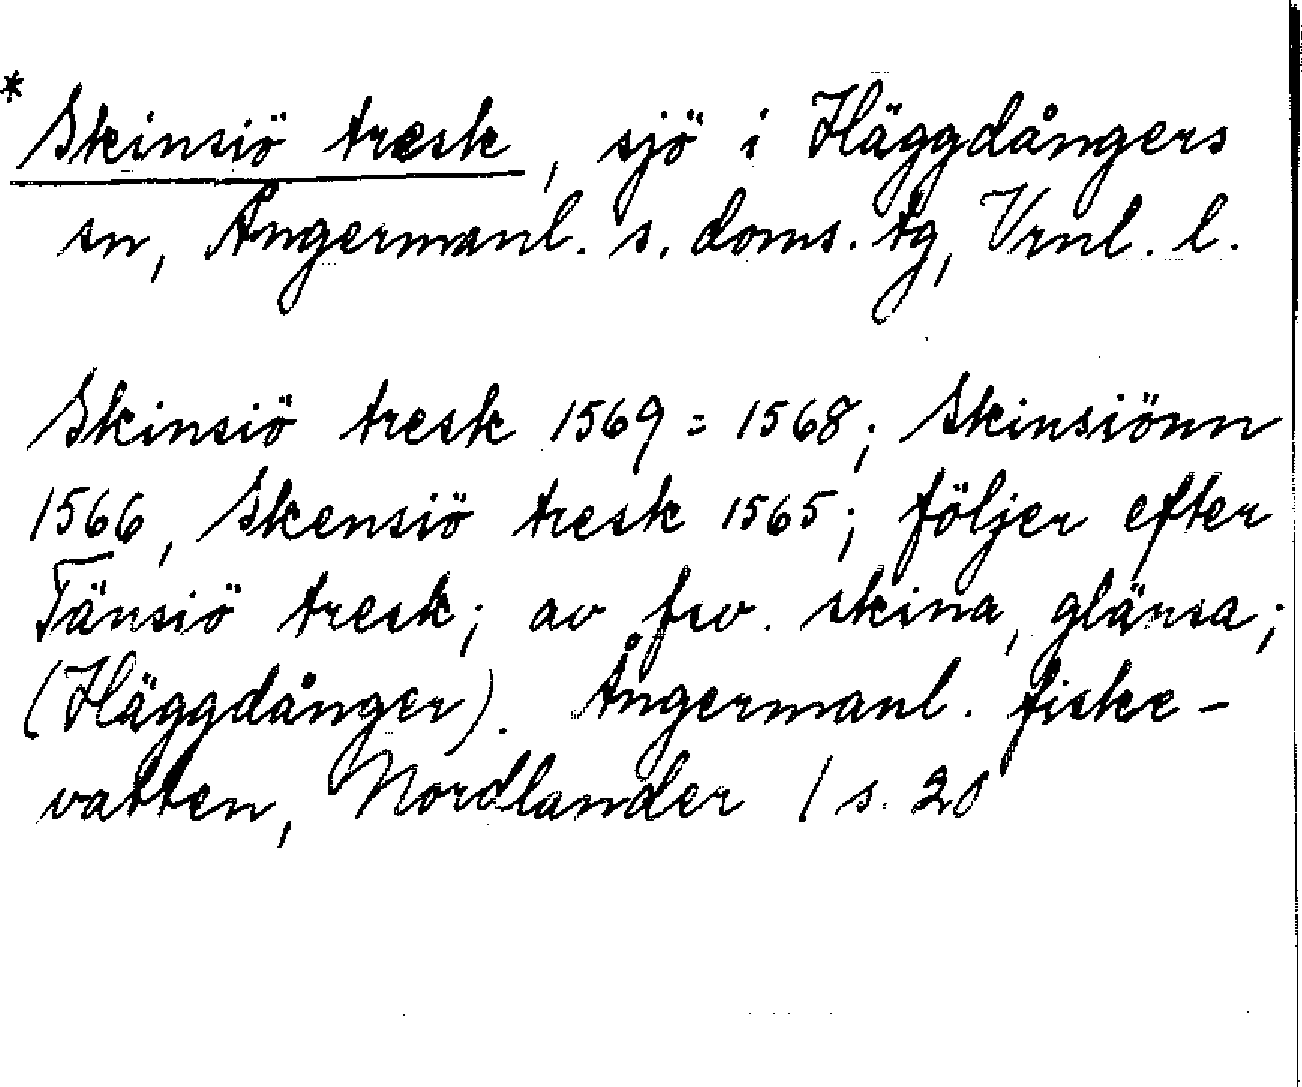 * Skinsiö træsk, sjö i Häggdångers
sn, Ångermanl. s. doms. tg, Vrnl. l.
Skinsiö tresk 1569 = 1568; Skinsiönn
1566, Skensiö tresk 1565; följer efter
Tänsiö tresk; av fsv. skina, glänsa;
(Häggdånger). Ångermanl. fiske-
vatten, Nordlander / s. 20